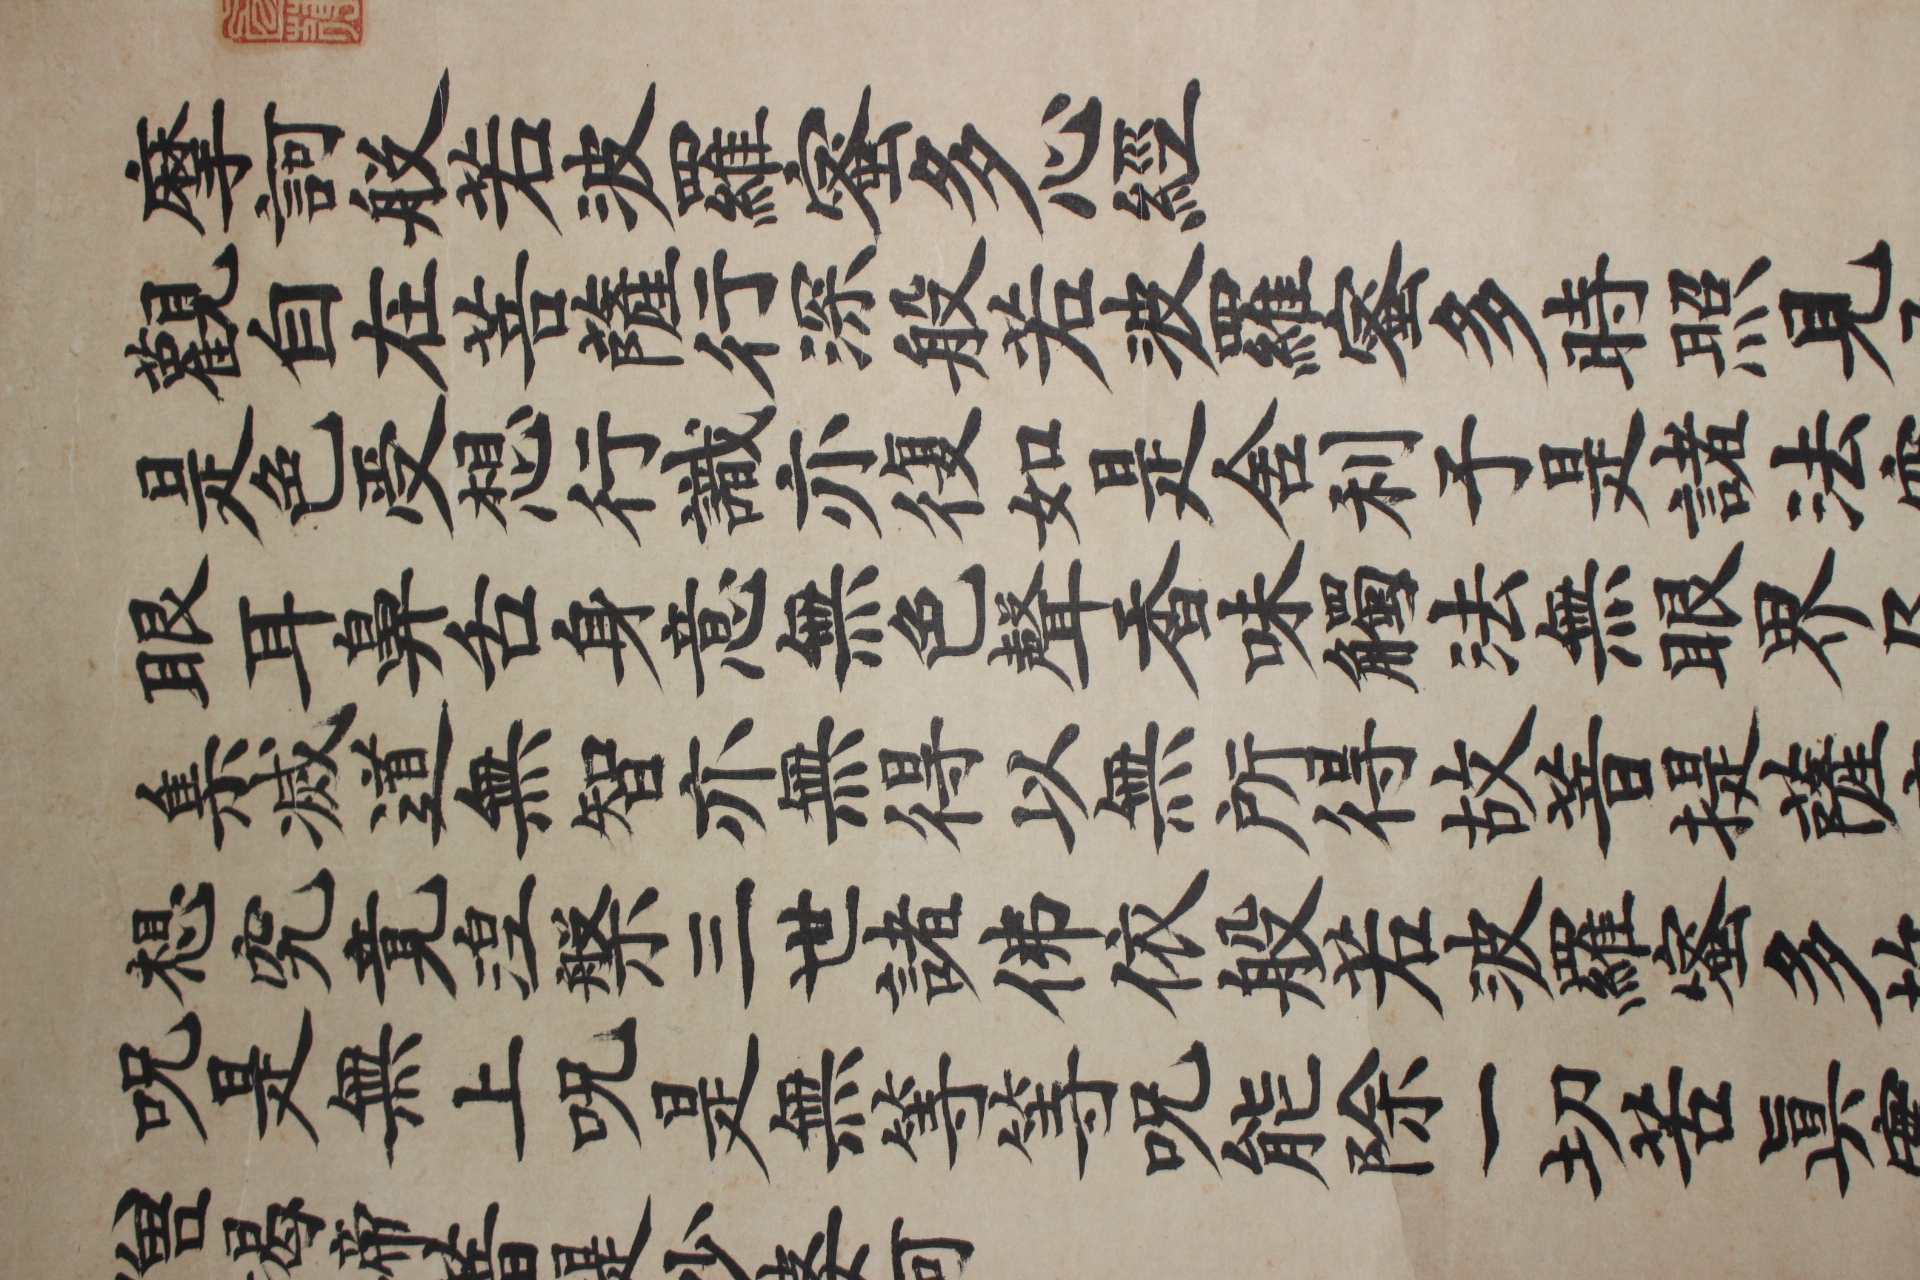 摩訶般若波羅蜜多心經
觀自在菩薩行深般若波羅蜜多時照見
是色受想行識亦復如是舍利子是諸法空
眼耳鼻舌身意無色聲香味觸法無眼界乃
集滅道無智亦無得以無所得故菩提薩
想究竟涅槃三世諸佛依般若波羅蜜多故
呪是無上呪是無等等呪能除一切苦真實
僧揭諦菩提娑婆訶